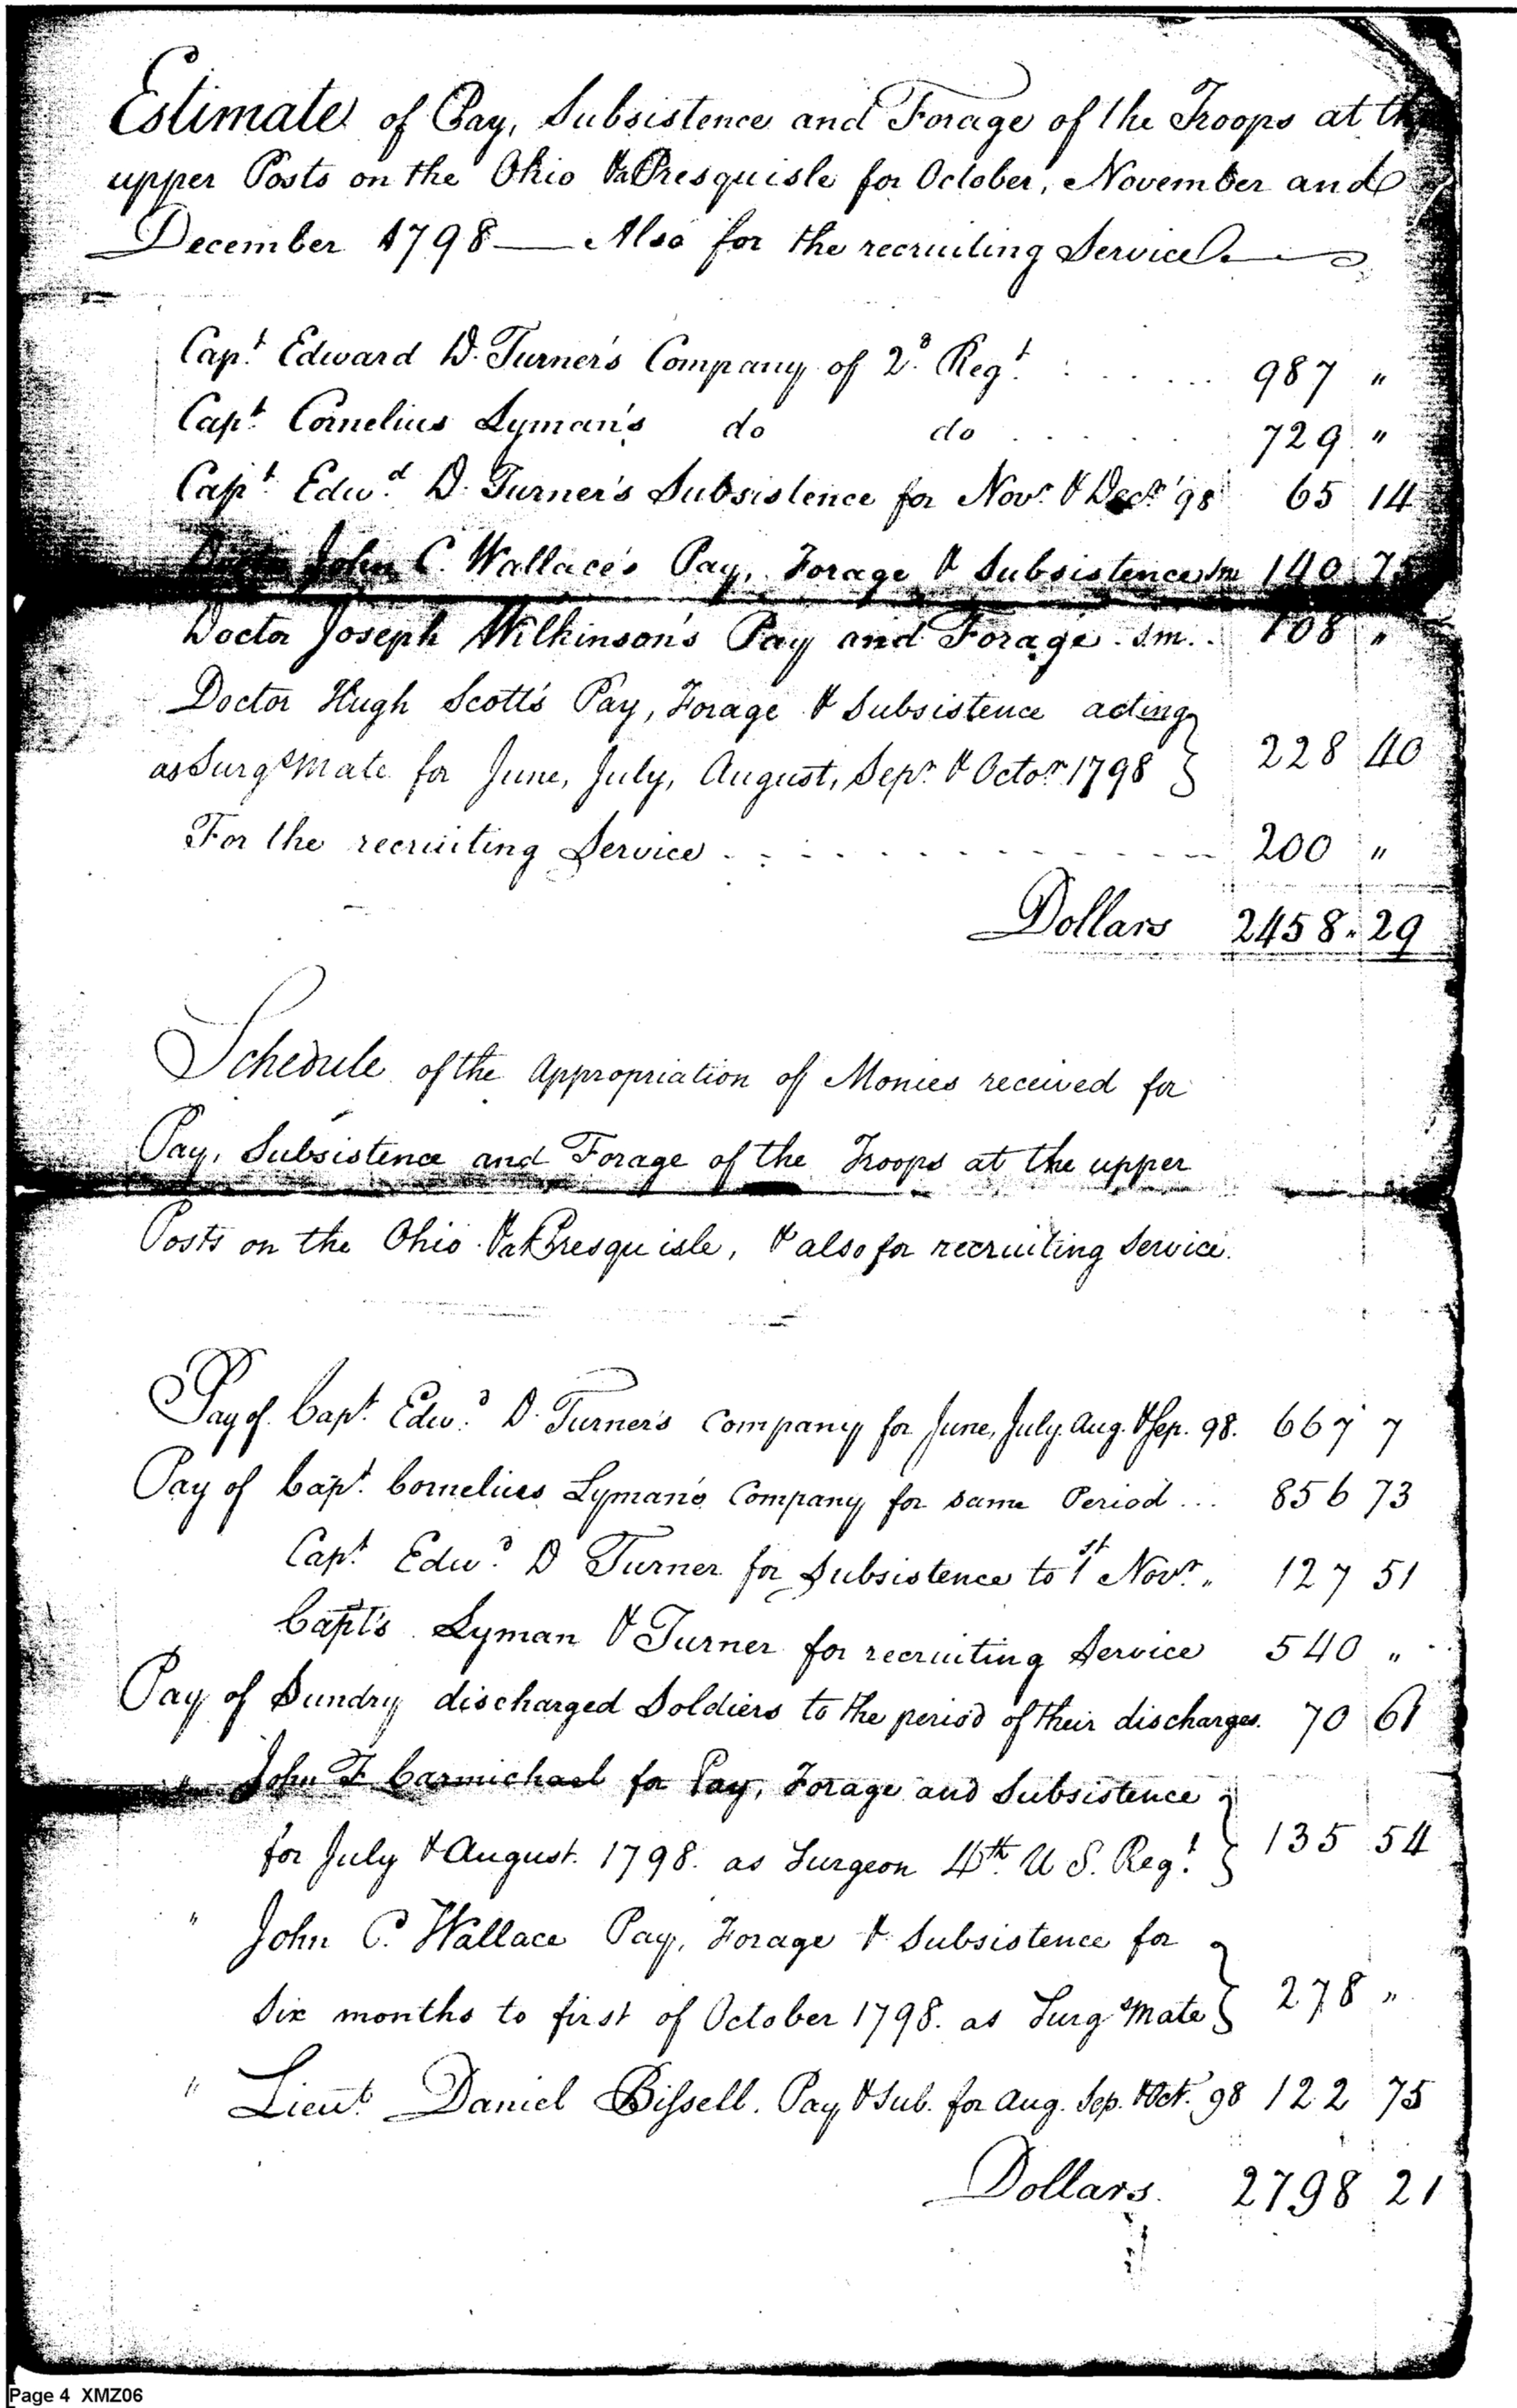 Estimate of Pay, Subsistence and Forage of the Troops at the
upper Posts on the Ohio & at Presquisle for October, November and
December 1798 — Also for the recruiting Service.
Capt. Edward D. Turner's Company of 2d. Regt. . . . . . 987 "
Capt. Cornelius Lyman's do do . . . . . 729 "
Capt. Edwd. D. Turner's Subsistence for Novr. & Decr. '98 65 14
Doctor John C. Wallace's Pay, Forage & Subsistence Sm 140 75
Doctor Joseph Wilkinson's Pay and Forage. S.m. . 108 "
Doctor Hugh Scott's Pay, Forage & Subsistence acting
as Surgs Mate for June, July, August, Sepr. & Octor. 1798 } 228 40
For the recruiting Service . . . . . . . . . . . . . 200 "
Dollars 2458.29
Schedule of the Appropriation of Monies received for
Pay, Subsistence and Forage of the Troops at the upper
Posts on the Ohio & at Presquisle, & also for recruiting Service.
Pay of Capt. Edwd. D. Turner's Company for June, July, Aug. & Sep. 98. 667 7
Pay of Capt. Cornelius Lyman's Company for same Period ... 856 73
Capt. Edwd. D Turner for Subsistence to 1st Novr. " 127 51
Capt's Lyman & Turner for recruiting Service 540 "
Pay of Sundry discharged Soldiers to the period of their discharges. 70 61
" John F Carmichael for Pay, Forage and Subsistence
for July & August. 1798. as Surgeon 4th. U S. Regt. } 135 54
" John C. Wallace Pay, Forage & Subsistence for
Six months to first of October 1798. as Surgs Mate } 278 "
" Lieut. Daniel Bissell. Pay & Sub. for Aug. Sep. & Oct. 98 122 75
Dollars. 2798 21
Page 4 XMZ06